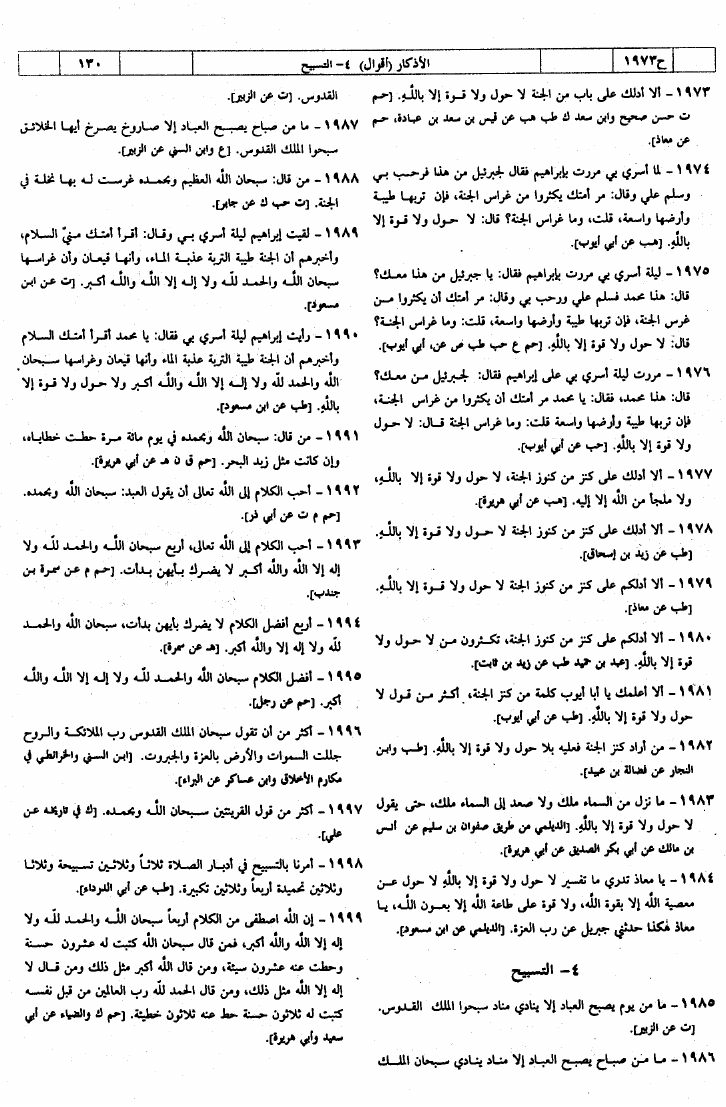 ح١٩٧٣
الأذكار (أقوال) ٤- التسبيح
١٣٠
١٩٧٣- ألا أدلك على باب من الجنة لا حول ولا قوة إلا باللَّهِ. [حم
ت حسن صحيح وابن سعد ك طب هب عن قيس بن سعد بن عبادة، حم
عن معاذ].
١٩٧٤- لما أسري بي مررت بإبراهيم فقال لجبرئيل من هذا فرحب بي
وسلم علي وقال: مر أمتك يكثروا من غراس الجنة، فإن تربها طيبة
وأرضها واسعة، قلت، وما غراس الجنة؟ قال: لا حول ولا قوة إلا
باللَّهِ. [هب عن أبي أيوب].
١٩٧٥- ليلة أسري بي مررت بإبراهيم فقال: يا جبرئيل من هذا معك؟
قال: هذا محمد فسلم علي ورحب بي وقال: مر أمتك أن يكثروا من
غرس الجنة، فإن تربها طيبة وأرضها واسعة، قلت: وما غراس الجنة؟
قال: لا حول ولا قوة إلا باللَّهِ. [حم ع حب طب ص عن، أبي أيوب].
١٩٧٦- مررت ليلة أسري بي على إبراهيم فقال: لجبرئيل من معك؟
قال: هذا محمد، فقال: يا محمد مر أمتك أن يكثروا من غراس الجنة،
فإن تربها طيبة وأرضها واسعة قلت: وما غراس الجنة قال: لا حول
ولا قوة إلا باللَّهِ. [حب عن أبي أيوب].
١٩٧٧- ألا أدلك على كنز من كنوز الجنة، لا حول ولا قوة إلا باللَّهِ،
ولا ملجأ من اللَّه إلا إليه. [هب عن أبي هريرة].
١٩٧٨- ألا أدلك على كنز من كنوز الجنة لا حول ولا قوة إلا باللَّهِ.
[طب عن زيد بن إسحاق].
١٩٧٩- ألا أدلكم على كنز من كنوز الجنة لا حول ولا قوة إلا باللَّهِ.
[طب عن معاذ].
١٩٨٠- ألا أدلكم على كنز من كنوز الجنة، تكثرون من لا حول ولا
قوة إلا باللَّهِ. [عبد بن حميد طب عن زيد بن ثابت].
١٩٨١- ألا أعلمك يا أبا أيوب كلمة من كنز الجنة، أكثر من قول لا
حول ولا قوة إلا باللَّهِ. [طب عن أبي أيوب].
١٩٨٢- من أراد كنز الجنة فعليه بلا حول ولا قوة إلا باللَّهِ. [طب وابن
النجار عن فضالة بن عبيد].
١٩٨٣- ما نزل من السماء ملك ولا صعد إلى السماء ملك، حتى يقول
لا حول ولا قوة إلا باللَّهِ. [الديلمي من طريق صفوان بن سليم عن أنس
بن مالك عن أبي بكر الصديق عن أبي هريرة].
١٩٨٤- يا معاذ تدري ما تفسير لا حول ولا قوة إلا باللَّهِ لا حول عن
معصية اللَّه إلا بقوة اللَّه، ولا قوة على طاعة اللَّه إلا بعون اللَّه، يا
معاذ هكذا حدثني جبريل عن رب العزة. [الديلمي عن ابن مسعود].
٤- التسبيح
١٩٨٥- ما من يوم يصبح العباد إلا ينادي مناد سبحوا الملك القدوس.
[ت عن الزبير].
١٩٨٦- ما من صباح يصبح العباد إلا مناد ينادي سبحان الملك
القدوس. [ت عن الزبير].
١٩٨٧- ما من صباح يصبح العباد إلا صاروخ يصرخ أيها الخلائق
سبحوا الملك القدوس. [ع وابن السني عن الزبير].
١٩٨٨- من قال: سبحان اللَّه العظيم وبحمده غرست له بها نخلة في
الجنة. [ت حب ك عن جابر].
١٩٨٩- لقيت إبراهيم ليلة أسري بي وقال: أقرأ أمتك منيّ السلام،
وأخبرهم أن الجنة طيبة التربة عذبة الماء، وأنها قيعان وأن غراسها
سبحان اللَّه والحمد للَّه ولا إله إلا اللَّه واللَّه أكبر. [ت عن ابن
مسعود].
١٩٩٠- رأيت إبراهيم ليلة أسري بي فقال: يا محمد أقرأ أمتك السلام
وأخبرهم أن الجنة طيبة التربة عذبة الماء وأنها قيعان وغراسها سبحان
اللَّه والحمد للَّه ولا إله إلا اللَّه واللَّه أكبر ولا حول ولا قوة إلا
باللَّهِ. [طب عن ابن مسعود].
١٩٩١- من قال: سبحان اللَّه وبحمده في يوم مائة مرة حطت خطاياه،
وإن كانت مثل زبد البحر. [حم ق ن هـ عن أبي هريرة].
١٩٩٢- أحب الكلام إلى اللَّه تعالى أن يقول العبد: سبحان اللَّه وبحمده.
[حم م ت عن أبي ذر].
١٩٩٣- أحب الكلام إلى اللَّه تعالى، أربع سبحان اللَّه والحمد للَّه ولا
إله إلا اللَّه واللَّه أكبر لا يضرك بأيهن بدأت. [حم م عن سمرة بن
جندب].
١٩٩٤- أربع أفضل الكلام لا يضرك بأيهن بدأت، سبحان اللَّه والحمد
للَّه ولا إله إلا واللَّه أكبر. [هـ عن سمرة].
١٩٩٥- أفضل الكلام سبحان اللَّه والحمد للَّه ولا إله إلا اللَّه واللَّه
أكبر. [حم عن رجل].
١٩٩٦- أكثر من أن تقول سبحان الملك القدوس رب الملائكة والروح
جللت السموات والأرض بالعزة والجبروت. [ابن السني والخرائطي في
مكارم الأخلاق وابن عساكر عن البراء].
١٩٩٧- أكثر من قول القرينتين سبحان اللَّه وبحمده. [ك في تاريخه عن
علي].
١٩٩٨- أمرنا بالتسبيح في أدبار الصلاة ثلاثاً وثلاثين تسبيحة وثلاثا
وثلاثين تحميدة أربعاً وثلاثين تكبيرة. [طب عن أبي الدرداء].
١٩٩٩- إن اللَّه اصطفى من الكلام أربعاً سبحان اللَّه والحمد للَّه ولا
إله إلا اللَّه واللَّه أكبر، فمن قال سبحان اللَّه كتبت له عشرون حسنة
وحطت عنه عشرون سيئة، ومن قال اللَّه أكبر مثل ذلك ومن قال لا
إله إلا اللَّه مثل ذلك، ومن قال الحمد للَّه رب العالمين من قبل نفسه
كتبت له ثلاثون حسنة حط عنه ثلاثون خطيئة. [حم ك والضياء عن أبي
سعيد وأبي هريرة].